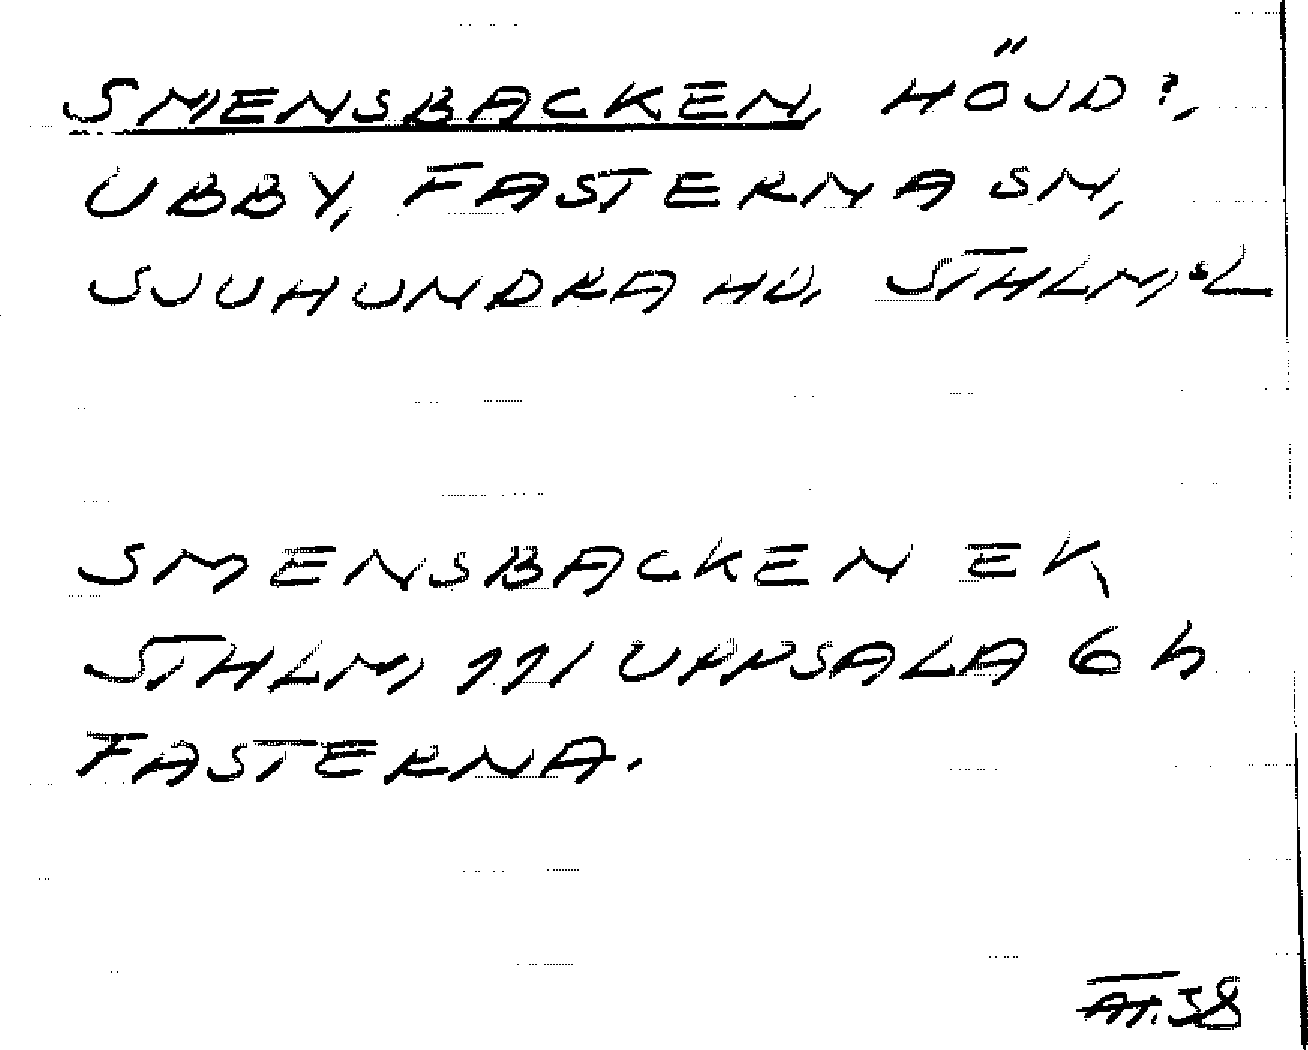 SMENSBACKEN, HÖJD?,
UBBY, FASTERNA SN,
SJUHUNDRA HD, STHLM:S L
SMENSBACKEN EK
STHLM, 111 UPPSALA 6 h
FASTERNA.